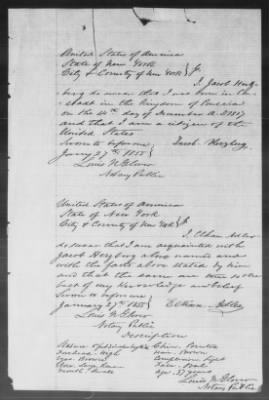 United States of America
State of New York
City & County of New York
I, Jacob Herz-
berg do swear that I was born in
in the Kingdom of Prussia
on the 14th day of December A.D. 1817
and that I am a citizen of the
United States
Sworn to before me Jacob Herzberg
January 27th 1855
Louis N. Glover
Notary Public
United States of America
State of New York
City & County of New York
I,
do swear that I am acquainted with
Jacob Herzberg above named and
with the facts above stated by him
and that the same are true to the
best of my knowledge and belief
Sworn to before me
January 27th 1855
Louis N. Glover
Notary Public
Description
Chin
Forehead High Hair Brown
Eyes Brown Complexion Light
Nose Large Face Oval
Mouth Age 37 years
Louis N. Glover
Notary Public